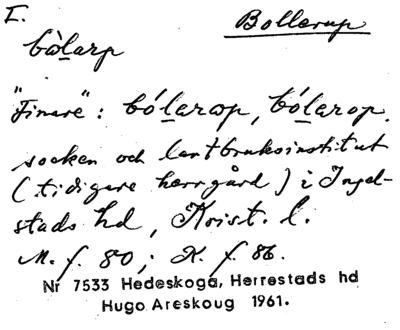 I.
Bollerup
bòlarp
"Finare": bólarop, bólarop.
socken och lantbruksinstitut
(tidigare herrgård) i Ingel-
stads hd, Krist. l.
M. f. 80; K. f. 86.
Nr 7533 Hedeskoga, Herrestads hd
Hugo Areskoug 1961.